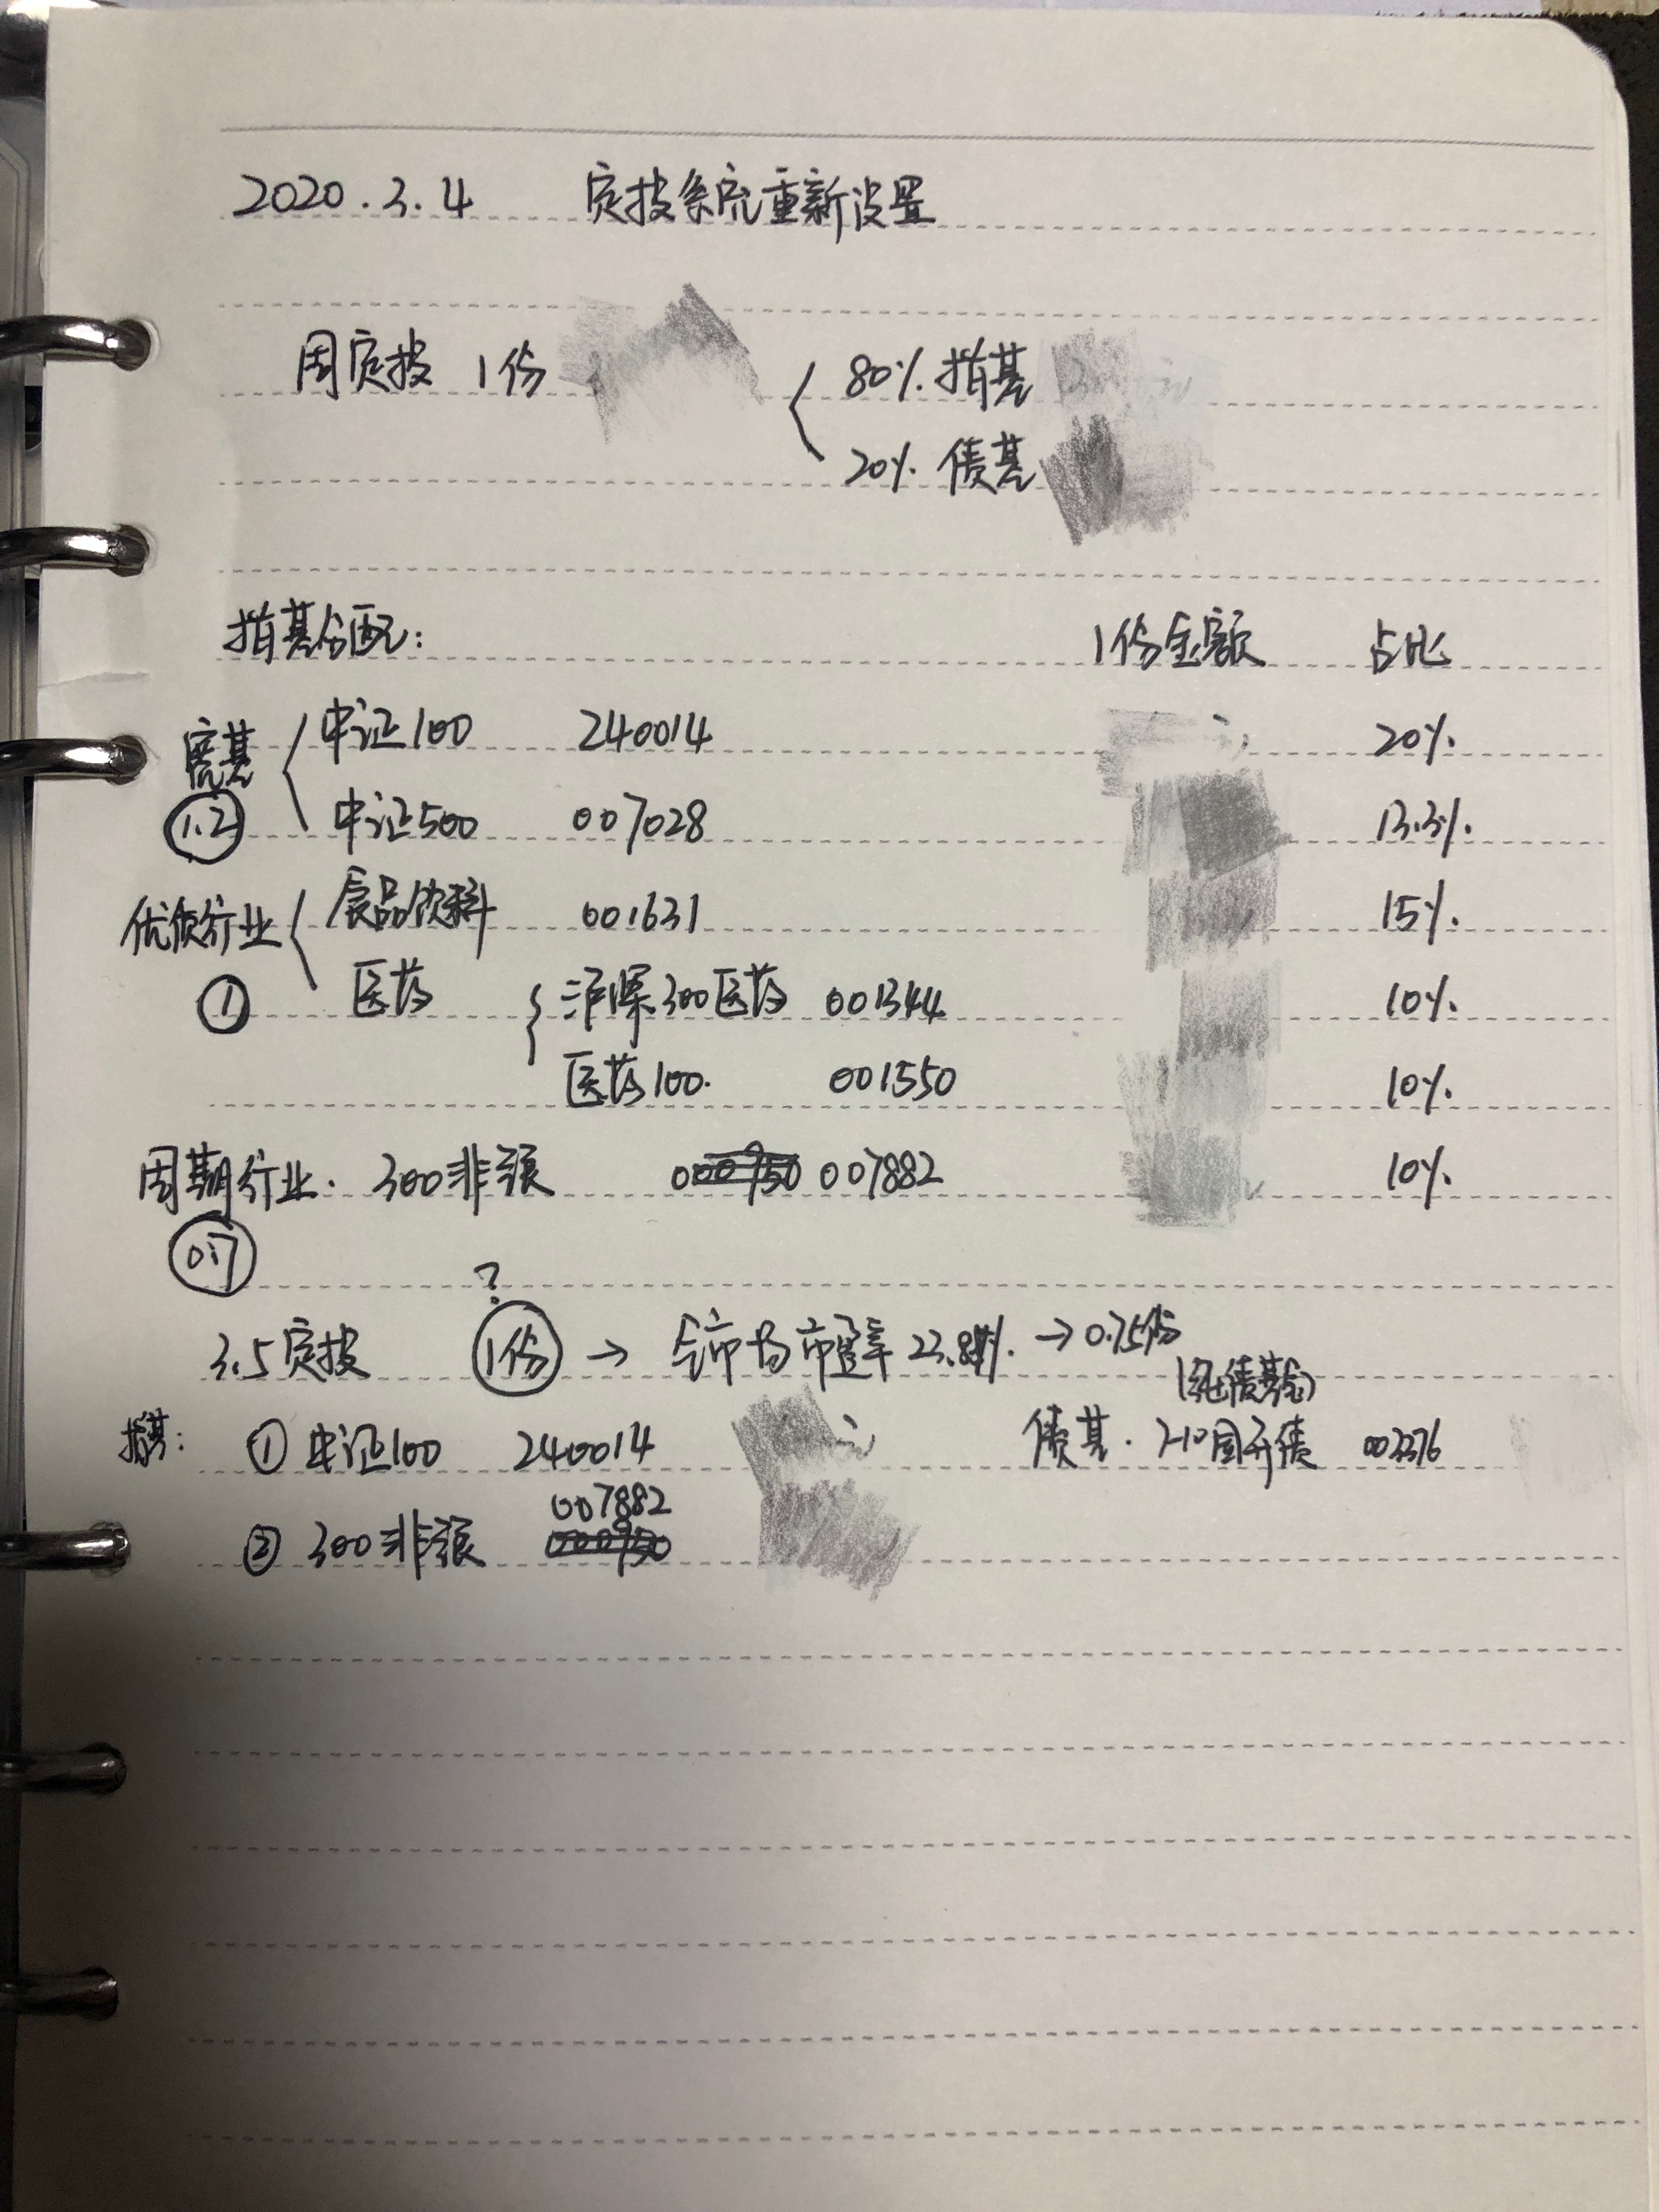 2020.3.4 定投系统重新设置
周定投 1份
80% 指基
20% 债基
指基分配: 1份金额 占比
宽基 中证100 240014 20%
1.2 中证500 007028 13.3%
优质行业 食品饮料 001631 15%
① 医药 沪深300医药 001344 10%
医药100. 001550 10%
周期行业. 300非银 000950 007882 10%
0.7
?
3.5定投 1份 → 全市场市盈率 → 0.75份
(纯债基金)
指基: ① 中证100 240014 元 债基. 7-10国开债 003376
007882
② 300非银 000950